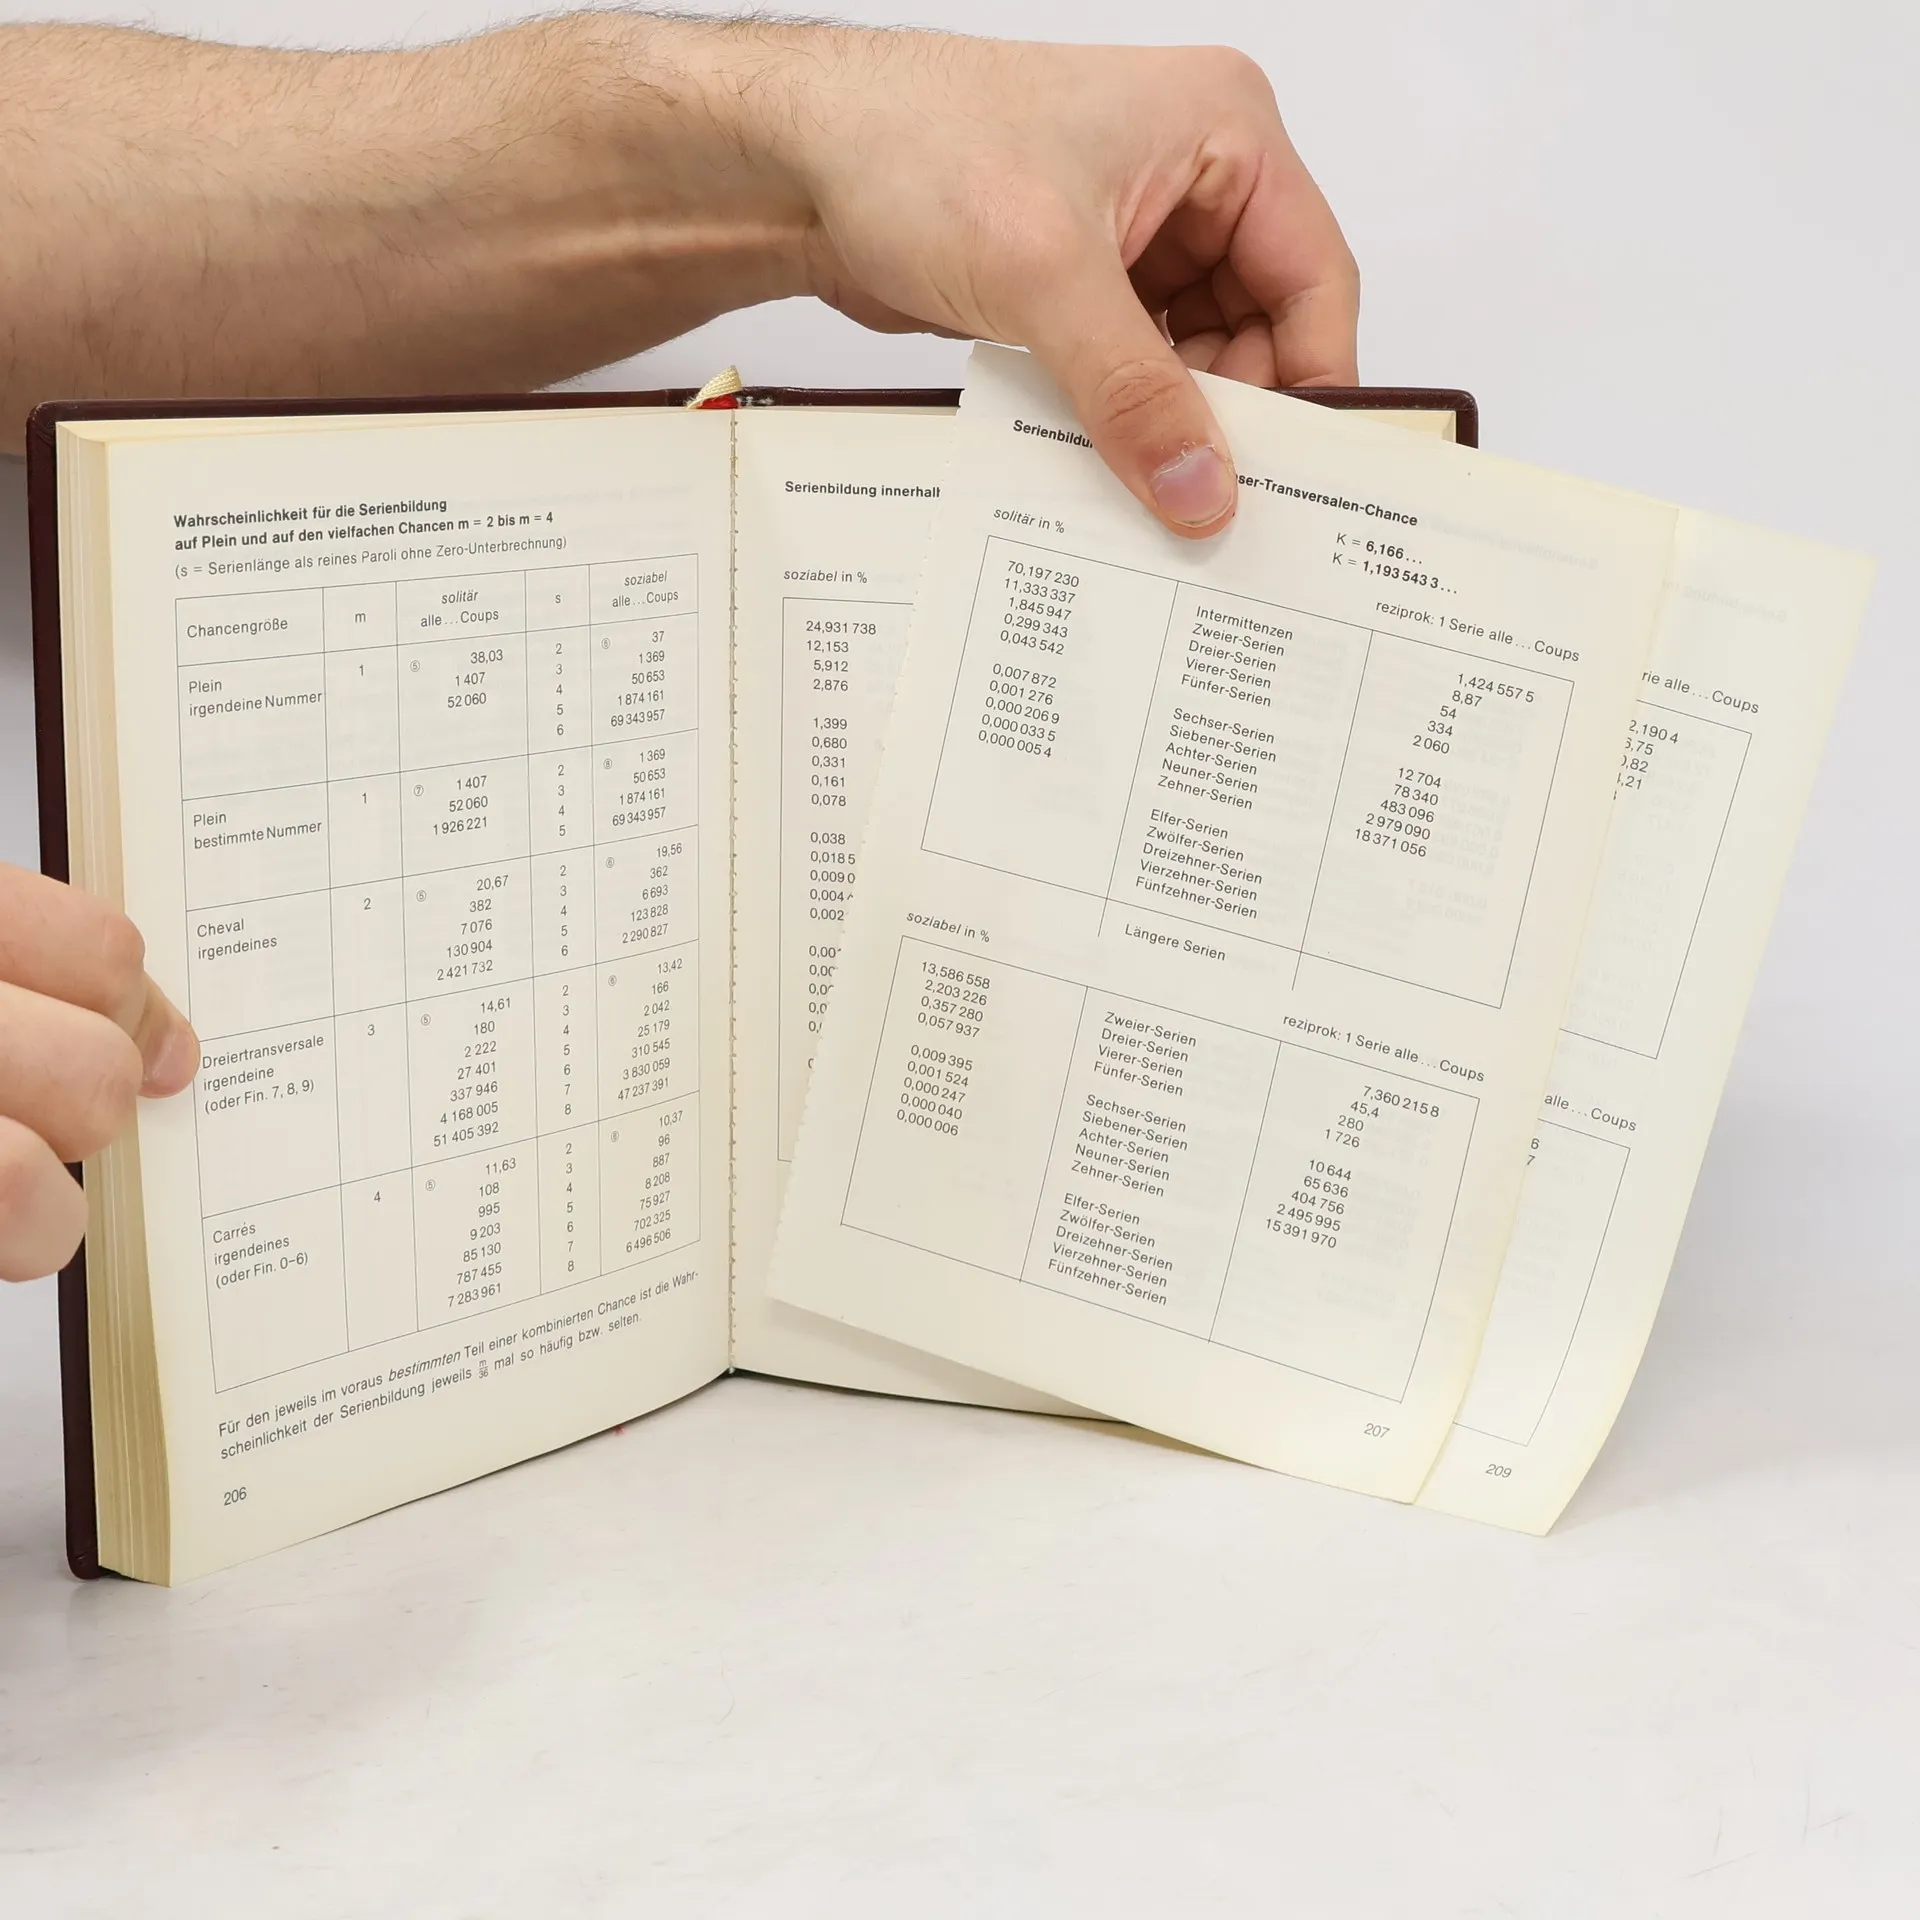 Wahrscheinlichkeit für die Serienbildung
auf Plein und auf den vielfachen Chancen m = 2 bis m = 4
(s = Serienlänge als reines Paroli ohne Zero-Unterbrechnung)
Chancengröße m solitär alle...Coups s soziabel alle...Coups
Plein irgendeine Nummer 1
⑤ 38,03 2 ⑤ 37
1 407 3 1 369
52 060 4 50 653
5 1 874 161
6 69 343 957
Plein bestimmte Nummer 1
⑦ 1 407 2 ⑧ 1 369
52 060 3 50 653
1 926 221 4 1 874 161
5 69 343 957
Cheval irgendeines 2
⑤ 20,67 2 ⑥ 19,56
382 3 362
7 076 4 6 693
130 904 5 123 828
2 421 732 6 2 290 827
Dreiertransversale irgendeine (oder Fin. 7, 8, 9) 3
⑤ 14,61 2 ⑥ 13,42
180 3 166
2 222 4 2 042
27 401 5 25 179
337 946 6 310 545
4 168 005 7 3 830 059
51 405 392 8 47 237 391
Carrés irgendeines (oder Fin. 0–6) 4
⑤ 11,63 2 ⑥ 10,37
108 3 96
995 4 887
9 203 5 8 208
85 130 6 75 927
787 455 7 702 325
7 283 961 8 6 496 506
Für den jeweils im voraus bestimmten Teil einer kombinierten Chance ist die Wahr-
scheinlichkeit der Serienbildung jeweils m/36 mal so häufig bzw. selten.
206
Serienbildung innerhalb
soziabel in %
24,931 738
12,153
5,912
2,876
1,399
0,680
0,331
0,161
0,078
0,038
0,018 5
0,009 0
0,004
0,002
-Transversalen-Chance
K = 6,166...
K = 1,193 543 3...
solitär in %
reziprok: 1 Serie alle...Coups
70,197 230 Intermittenzen 1,424 557 5
11,333 337 Zweier-Serien 8,87
1,845 947 Dreier-Serien 54
0,299 343 Vierer-Serien 334
0,043 542 Fünfer-Serien 2 060
0,007 872 Sechser-Serien 12 704
0,001 276 Siebener-Serien 78 340
0,000 206 9 Achter-Serien 483 096
0,000 033 5 Neuner-Serien 2 979 090
0,000 005 4 Zehner-Serien 18 371 056
Elfer-Serien
Zwölfer-Serien
Dreizehner-Serien
Vierzehner-Serien
Fünfzehner-Serien
Längere Serien
soziabel in %
reziprok: 1 Serie alle...Coups
13,586 558 Zweier-Serien 7,360 215 8
2,203 226 Dreier-Serien 45,4
0,357 280 Vierer-Serien 280
0,057 937 Fünfer-Serien 1 726
0,009 395 Sechser-Serien 10 644
0,001 524 Siebener-Serien 65 636
0,000 247 Achter-Serien 404 756
0,000 040 Neuner-Serien 2 495 995
0,000 006 Zehner-Serien 15 391 970
Elfer-Serien
Zwölfer-Serien
Dreizehner-Serien
Vierzehner-Serien
Fünfzehner-Serien
207
alle...Coups
2,190 4
alle...Coups
209